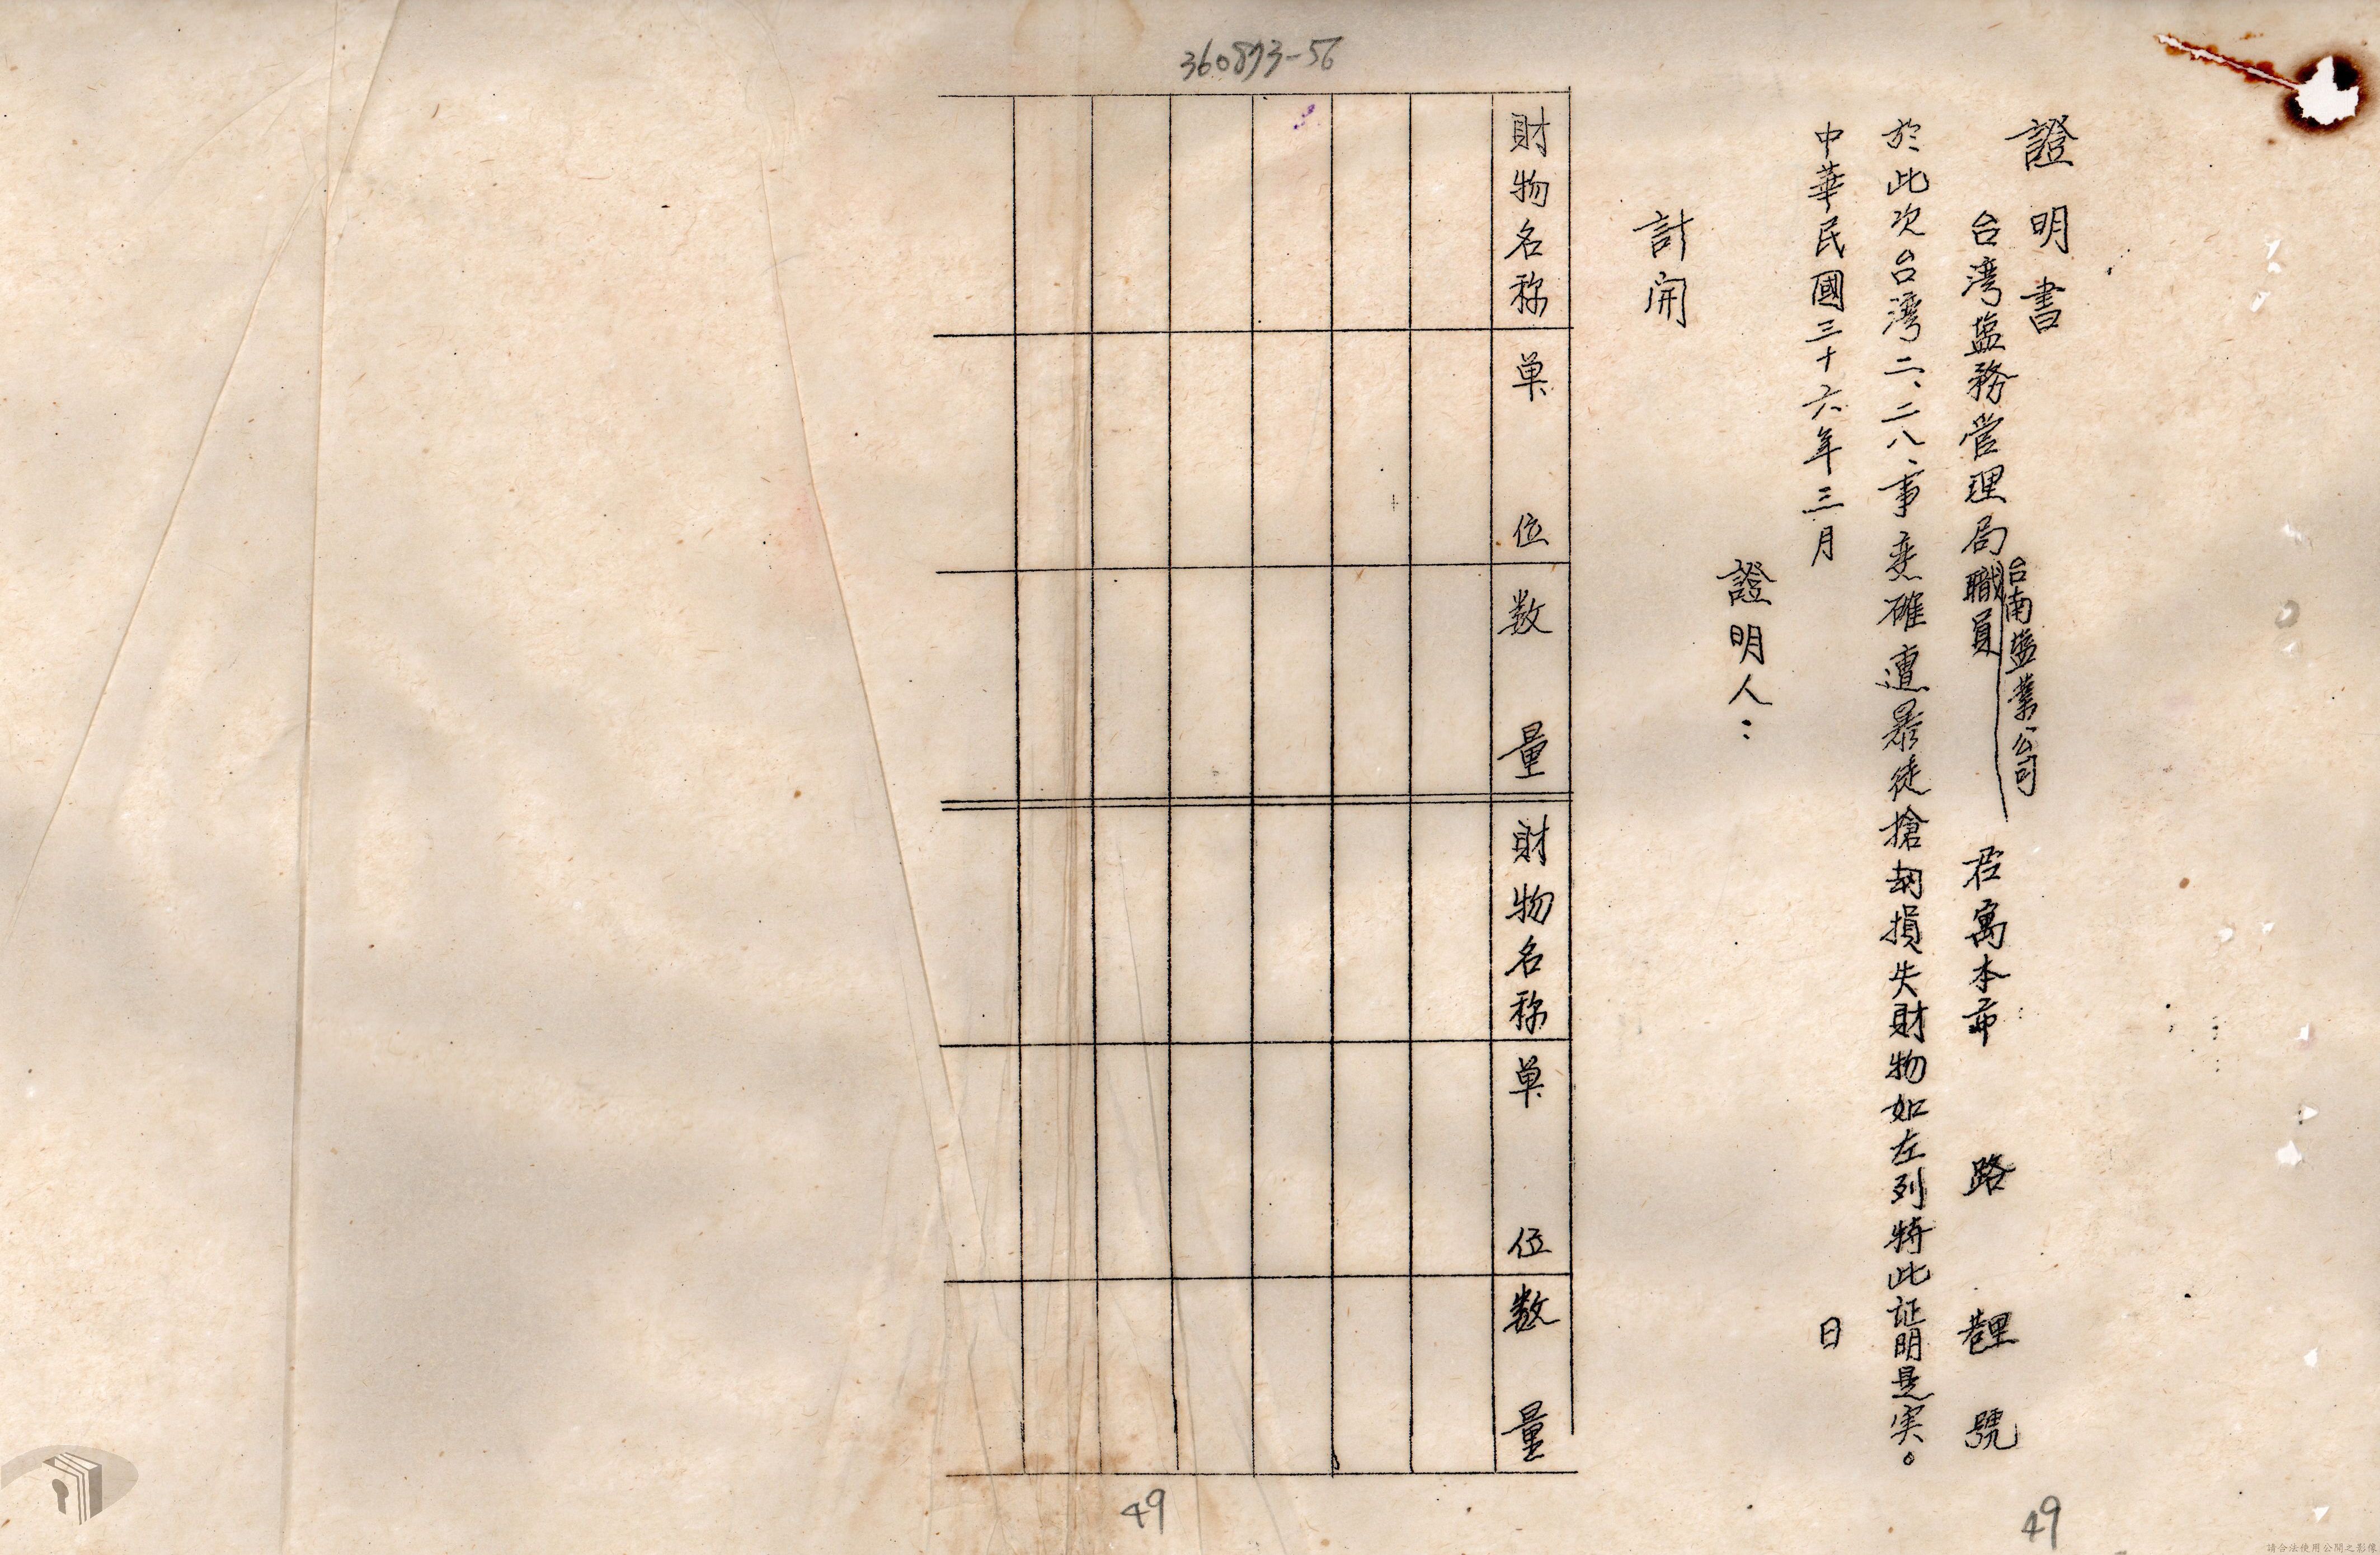 證明書
台灣塩務管理局職員 君寓本市 路 巷里 號
台南塩業公司
於此次台湾二、二八、事変確遭暴徒搶劫損失財物如左列特此证明是実。
中華民國三十六年三月 日
證明人：
計開
財物名称 単位 数量 財物名称 単位 数量
360893-56
49
49
請合法使用公開之影像